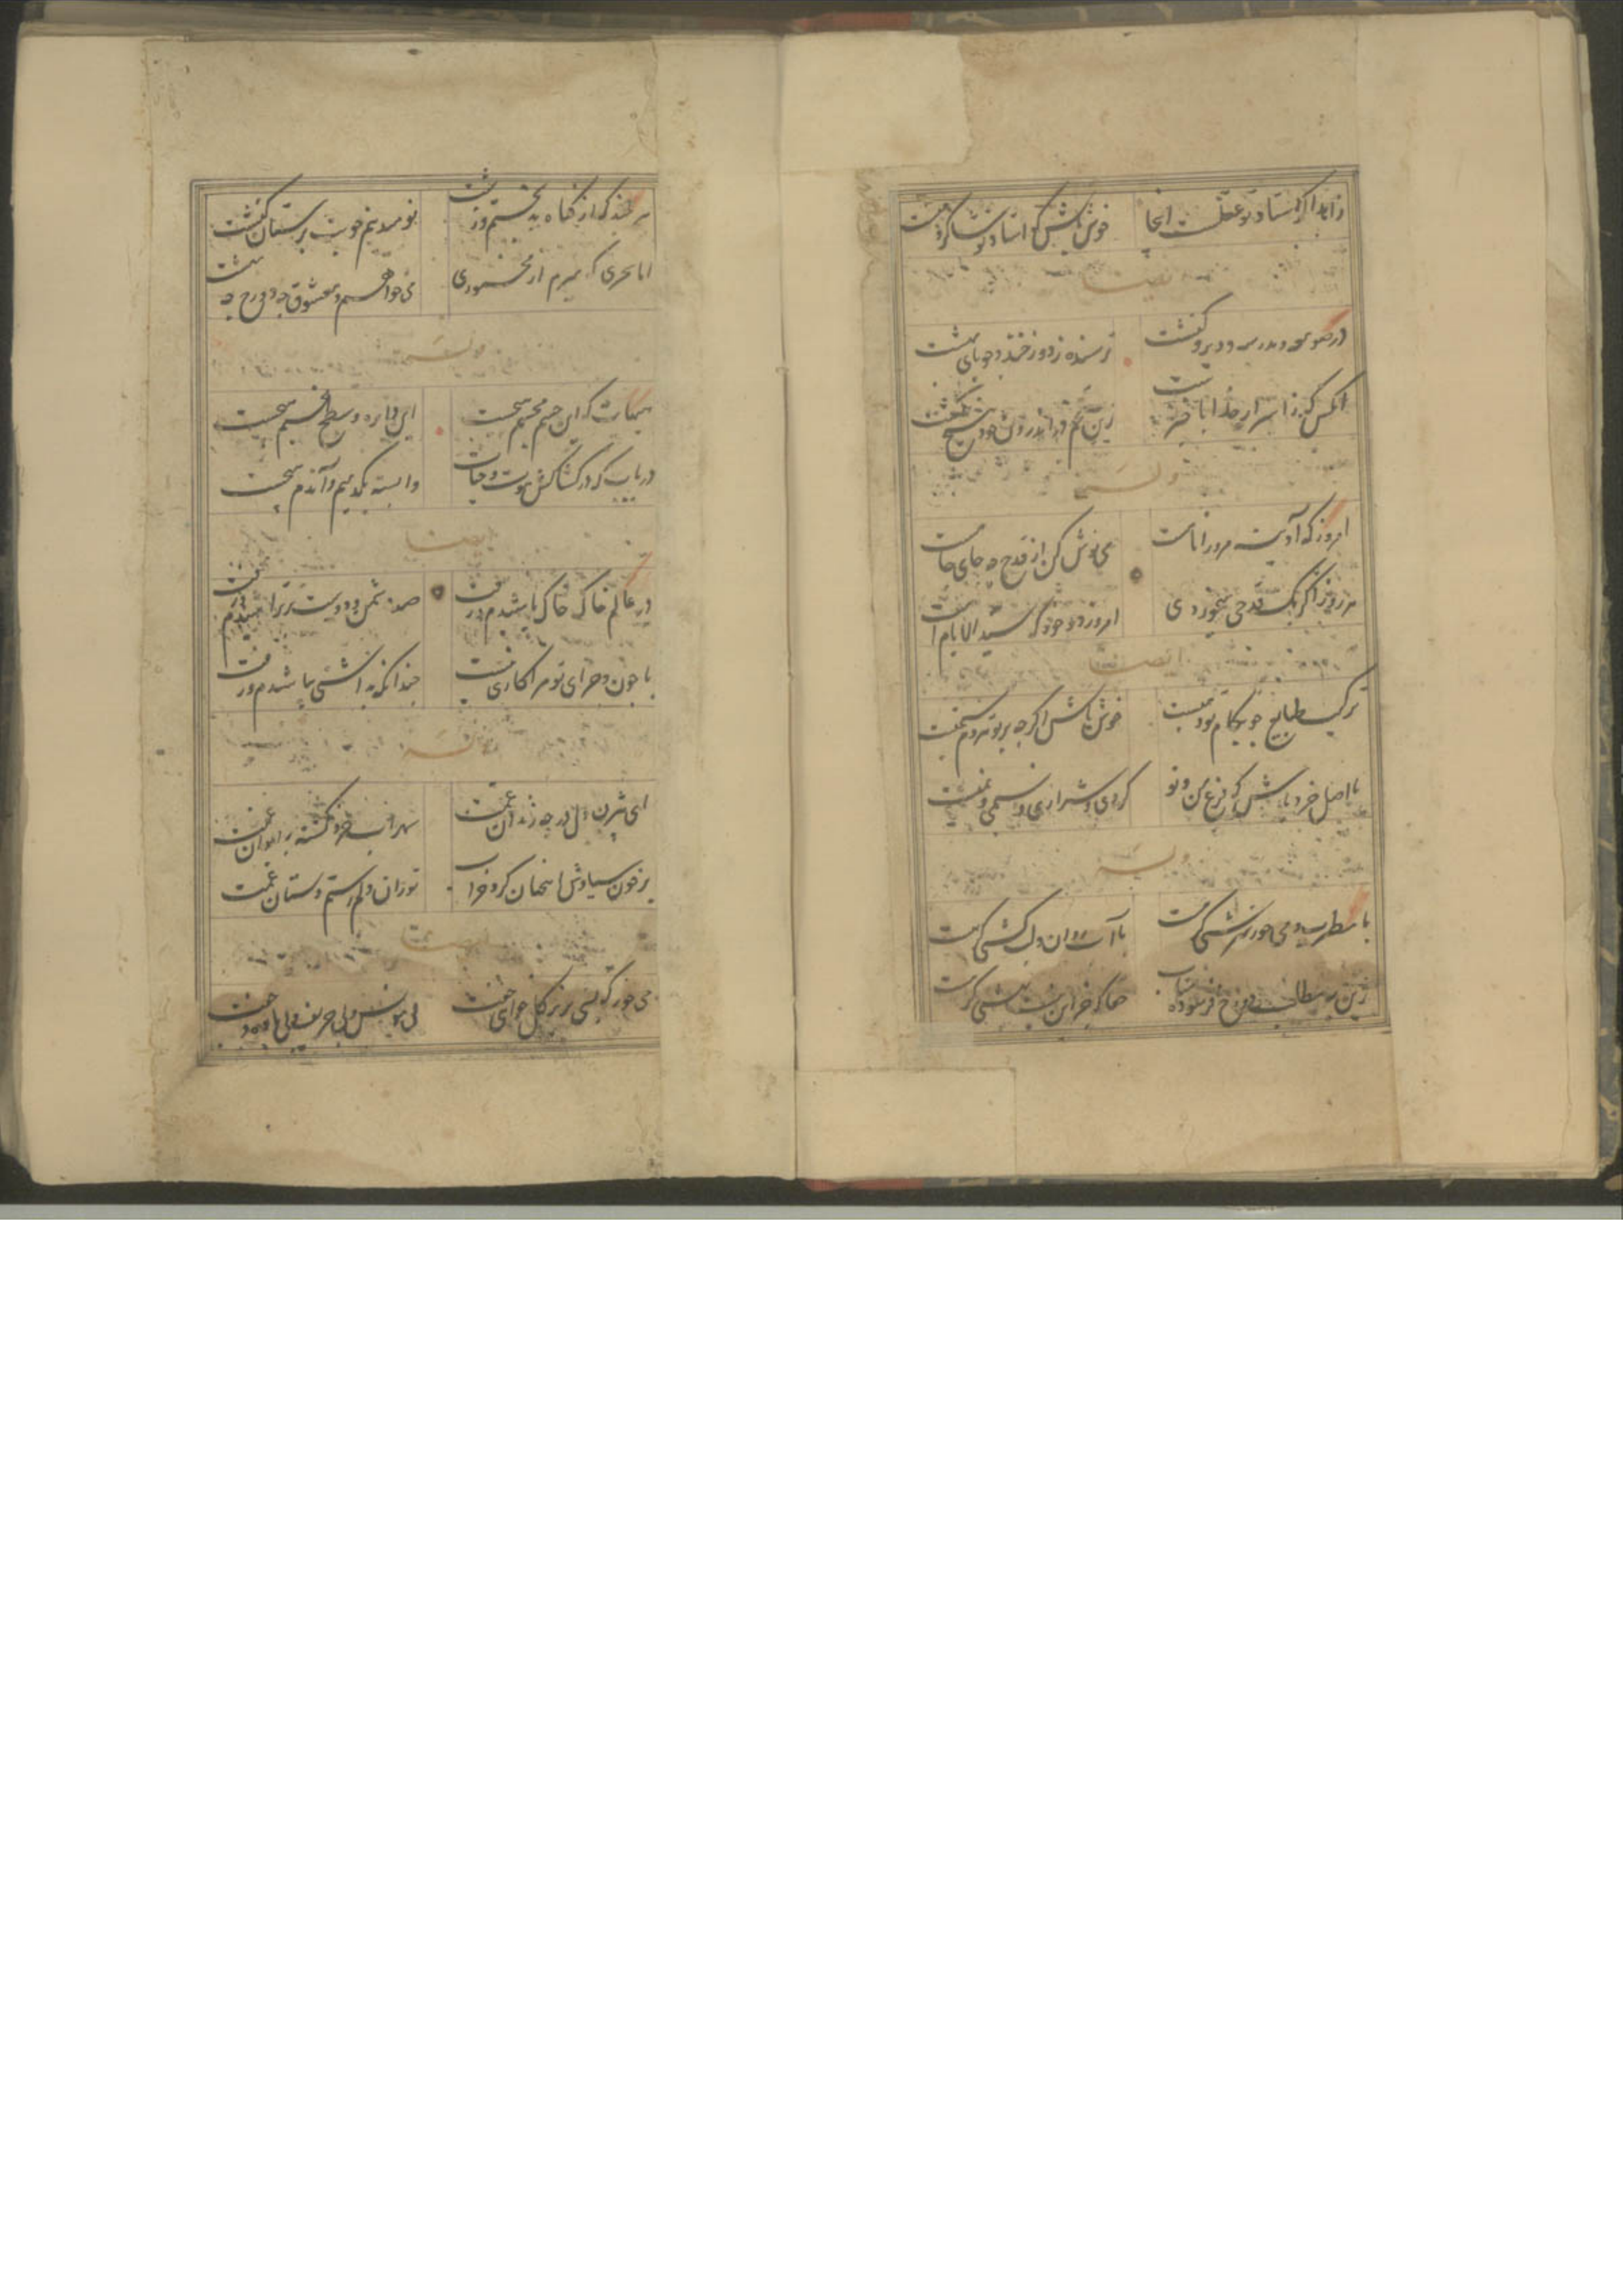 زاهد اگر استاد تو عقلست اینجا خوش باش که استاد تو شاگرد منست
ایضا
در صومعه و مدرسه و دیر و کنشت ترسنده ز دوزخند و جویای بهشت
آنکس که ز اسرار خدا با خبرست زین تخم در اندرون خود هیچ نکشت
وله
امروز که آدینه مرو را نامست می نوش کن از قدح چه جای جامست
هر روز اگر یک قدحی میخوردی امروز دو خور که سید الایامست
ایضا
ترکیب طبایع چو بکام تو دمیست خوش باش اگرچه بر تو هر دم ستمیست
با اهل خرد باش که تن و تو گردی و شراری و نسیمی و نمیست
وله
با مطرب و می حور سرشتی گر هست با آب روان و لب کشتی گر هست
زین به مطلب دوزخ فرسوده متاب حقا که جز این نیست بهشتی گر هست
هر چند که از گناه بدبختم و زشت نومید نیم چو بت پرستان کنشت
اما سحری که میرم از مخموری می خواهم و معشوق چه دوزخ چه بهشت
وله
هیهات که این جسم مجسم هیچست این دایره و سطح مخیم هیچست
دریاب که در کشاکش موت و حیات وابسته یکدمیم و آندم هیچست
ایضا
در عالم خاک خاک پاشیدم و رفت صد دشمن و دوست بر تراشیدم و رفت
با چون و چرای تو مرا کاری نیست چندانکه بداشتی بباشیدم و رفت
وله
ای دل چه زندان غمت سهراب خرد کشته غمت
بر خون سیاوش کرد خراب توران دلم رستم دستان غمت
ایضا
می خور که بسی زیر گل خواهی خفت بی مونس و بی حریف و بی جفت